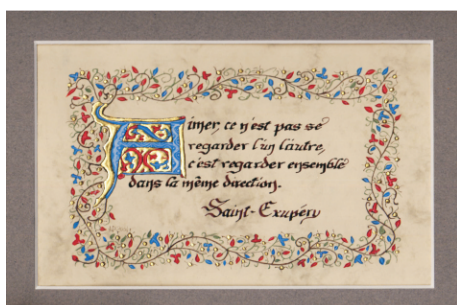 Aimer, ce n'est pas se
regarder l'un l'autre,
c'est regarder ensemble
dans la même direction.
Saint-Exupéry